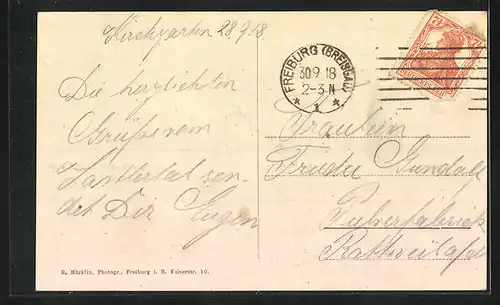 Kirchzarten 28.9.18
Die herzlichsten
Grüße vom
sen-
det Dir Eugen
FREIBURG (BREISGAU)
30.9.18
2-3 N
* 1 *
7½
Fräulein
Frieda
Pulverfabrik
Rottweil a/N
R. Märklin, Photogr., Freiburg i. B. Kaiserstr. 10.